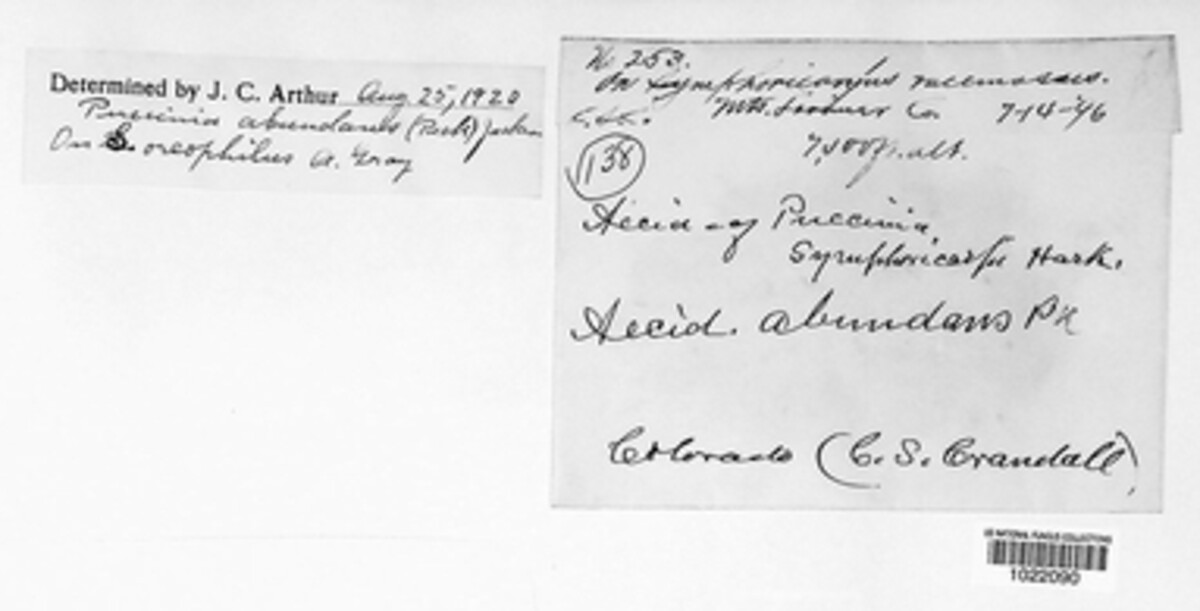 Determined by J. C. Arthur Aug 25, 1920
Puccinia abundans (Peck) Jackson
On S. oreophilus A. Gray
No 253.
On Symphoricarpus racemosus.
C.S.C. Mts. Larimer Co. 7-14-96
7,400 ft. alt.
138
Aecia of Puccinia
Symphoricarpi Hark.
Aecid. abundans Pk
Colorado (C. S. Crandall)
US NATIONAL FUNGUS COLLECTIONS
1022090